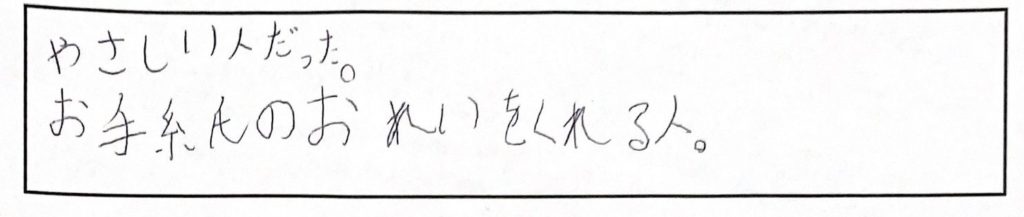 やさしい人だった。
お手紙のおれいをくれる人。